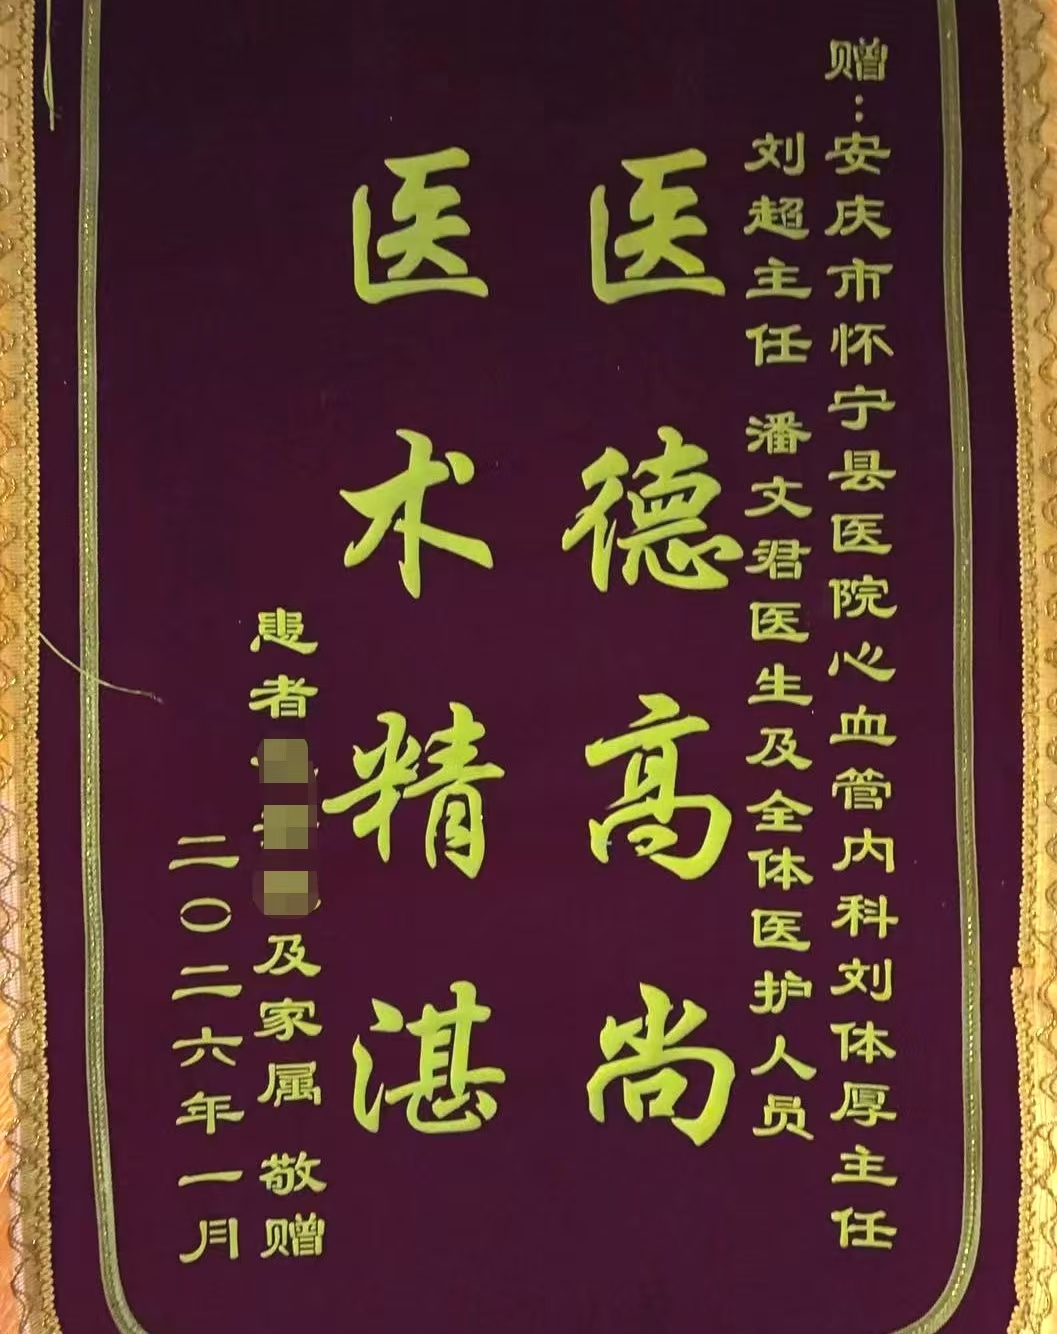 赠：安庆市怀宁县医院心血管内科刘体厚主任
刘超主任 潘文君医生及全体医护人员
医德高尚
医术精湛
患者 及家属 敬赠
二〇二六年一月